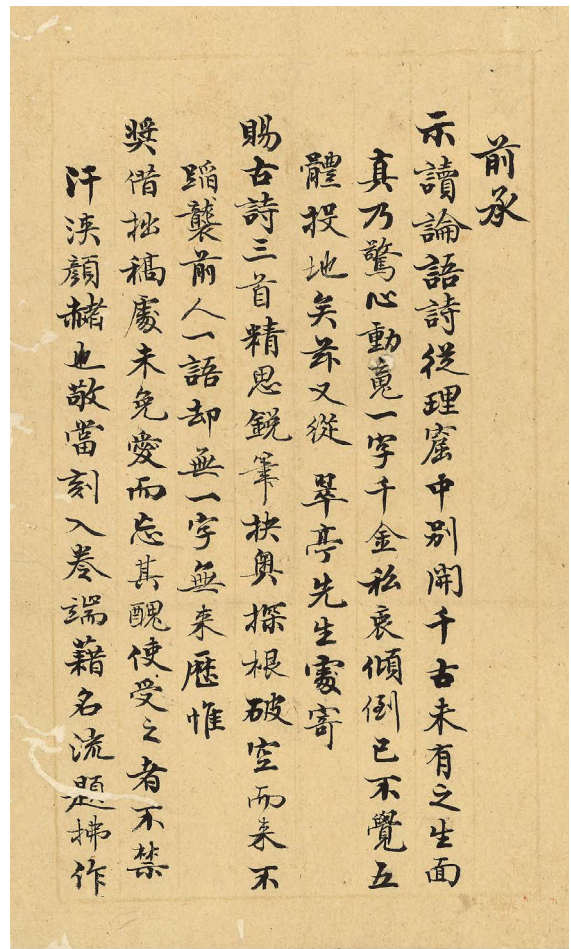 前承
示讀論語詩從理窟中别開千古未有之生面
真乃驚心動䰟一字千金私衷傾倒已不覺五
體投地矣茲又從 翠亭先生處寄
賜古詩三首精思銳筆抉奧探根破空而来不
蹈襲前人一語却無一字無来歷惟
奬借拙稿處未免愛而忘其醜使受之者不禁
汗浹顏赭也敬當刻入卷端藉名流題拂作